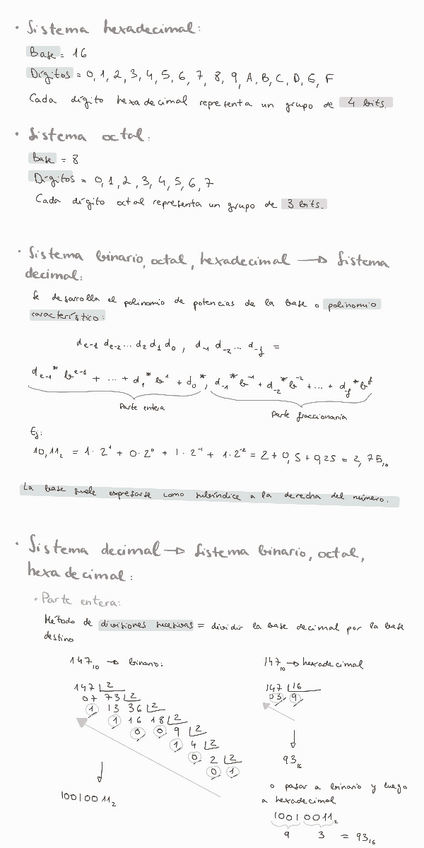 • Sistema hexadecimal:
Base = 16
Dígitos = 0, 1, 2, 3, 4, 5, 6, 7, 8, 9, A, B, C, D, E, F
Cada dígito hexadecimal representa un grupo de 4 bits.
• Sistema octal:
Base = 8
Dígitos = 0, 1, 2, 3, 4, 5, 6, 7
Cada dígito octal representa un grupo de 3 bits.
• Sistema binario, octal, hexadecimal → Sistema
decimal:
Se desarolla el polinomio de potencias de la base o polinomio
característico:
d_{e-1} d_{e-2} ... d_2 d_1 d_0, d_{-1} d_{-2} ... d_{-f} =
d_{e-1} * b^{e-1} + ... + d_1 * b^1 + d_0 *, d_{-1} * b^{-1} + d_{-2} * b^{-2} + ... + d_f * b^f
Parte entera Parte fraccionaria
Ej:
10,11₂ = 1 · 2¹ + 0 · 2⁰ + 1 · 2⁻¹ + 1 · 2⁻² = 2 + 0,5 + 0,25 = 2,75₁₀
La base suele expresarse como subíndice a la derecha del número.
• Sistema decimal → Sistema binario, octal,
hexadecimal:
• Parte entera:
Método de divisiones sucesivas = dividir la base decimal por la base
destino
147₁₀ → binario: 147₁₀ → hexadecimal
147 |2 147 |16
07 73 |2 03 9
1 13 36 |2
1 16 18 |2
0 0 9 |2
1 4 |2
0 2 |2
0 1
93₁₆
10010011₂
o pasar a binario y luego
a hexadecimal
1001 0011₂
9 3 = 93₁₆